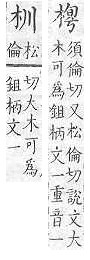 須倫切又松倫切說文大
木可為鉏柄文一重音一
杊
松
倫
切大木可為
鉏柄文一